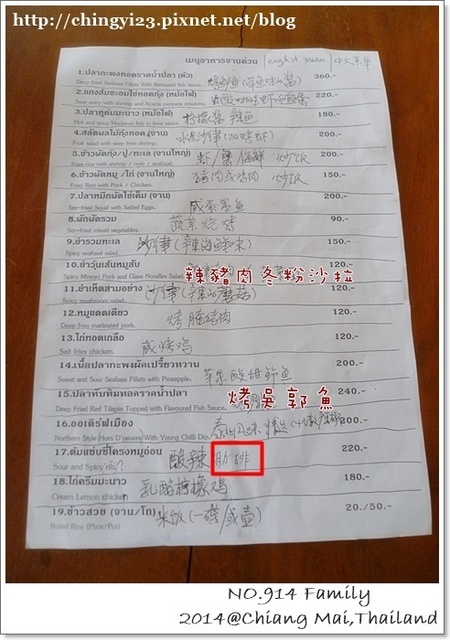 http://chingyi23.pixnet.net/blog
เมนูอาหารจานด่วน / english menu / 中文菜单
1.ปลากะพงทอดราดน้ำปลา (ตัว) 360.-
Deep fried Seabass Fillets With flavored fish sauce.
2.แกงส้มชะอมไข่ทอดกุ้ง (หม้อไฟ) 220.-
Sour curry with shrimp and Acacia pennata omelets.
3.ปลาทูต้มมะนาว (หม้อไฟ) 180.-
Hot and spicy Mackerel fish in lime sauce.
4.สลัดผลไม้กุ้งทอด (จาน) 200.-
Fruit salad with deep free shrimp.
5.ข้าวผัดกุ้ง/ปู/ทะเล (จานใหญ่) 虾/蟹/海鲜 炒饭 200.-
Fries rice with shrimp / crab / seafood.
6.ข้าวผัดหมู /ไก่ (จานใหญ่) 猪肉或鸡肉 炒饭 150.-
Fried Rice with Pork / Chicken.
7.ปลาหมึกผัดไข่เค็ม (จาน) 咸蛋墨鱼 200.-
Stir-fried Squid with Salted Eggs.
8.ผักผัดรวม 90.-
Stir-fried mixed vegetables.
9.ยำรวมทะเล 沙律(辣海鲜味) 150.-
Spicy seafood salad.
10.ยำวุ้นเส้นหมูสับ 辣豬肉冬粉沙拉 120.-
Spicy Minced Pork and Glass Noodles Salad
11.ยำเห็ดสามอย่าง 沙律(辣的蘑菇) 120.-
Spicy mushroom salad.
12.หมูแดดเดียว 烤腌猪肉 120.-
Deep fries marinated pork.
13.ไก่ทอดเกลือ 咸烤鸡 120.-
Salt fries chicken.
14.เนื้อปลากะพงผัดเปรี้ยวหวาน 200.-
Sweet and Sour Seabass Fillets with Pineapple.
15.ปลาทับทิมทอดราดน้ำปลา 烤吳郭魚 240.-
Deep Fried Red Tilapia Topped with Flavoured Fish Sauce.
16.ออเดิร์ฟเมือง 200.-
Northern Style (Hors D'oeuvre) With Young Chilli Dip.
17.ต้มแซ่บซี่โครงหมูอ่อน 酸辣 肋排 220.-
Sour and Spicy ribs
18.ไก่ครีมมะนาว 乳酪柠檬鸡 180.-
Cream Lemon chicken
19.ข้าวสวย (จาน/โถ) 米饭(一碟/或壶) 20./50.-
Boiled Rice (Plate/Pot)
NO.914 Family
2014@Chiang Mai,Thailand